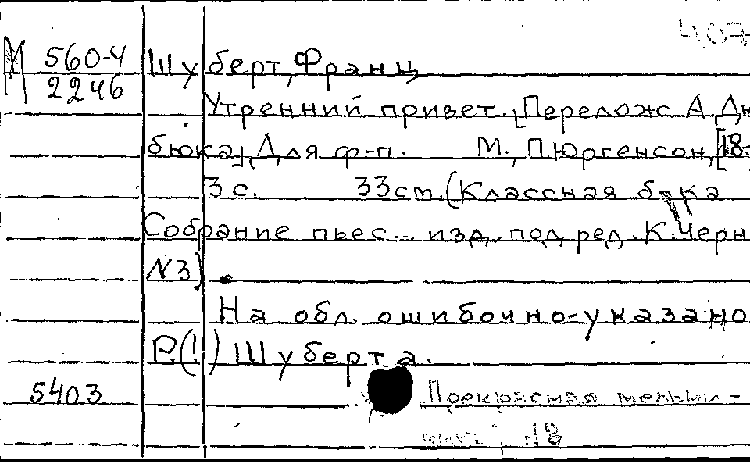 407
М 560-4 Шуберт, Франц
2246
Утренний привет. [Переложс А. Дю
бюка], Для ф-п. М., П. Юргенсон, [18
3 с. 33см. (Классная б-ка
Собрание пьес... изд. под ред. К. Черн
N3).
На обл. ошибочно указано
Р(!) Шуберта.
5403 Прекрасная мельни-
18